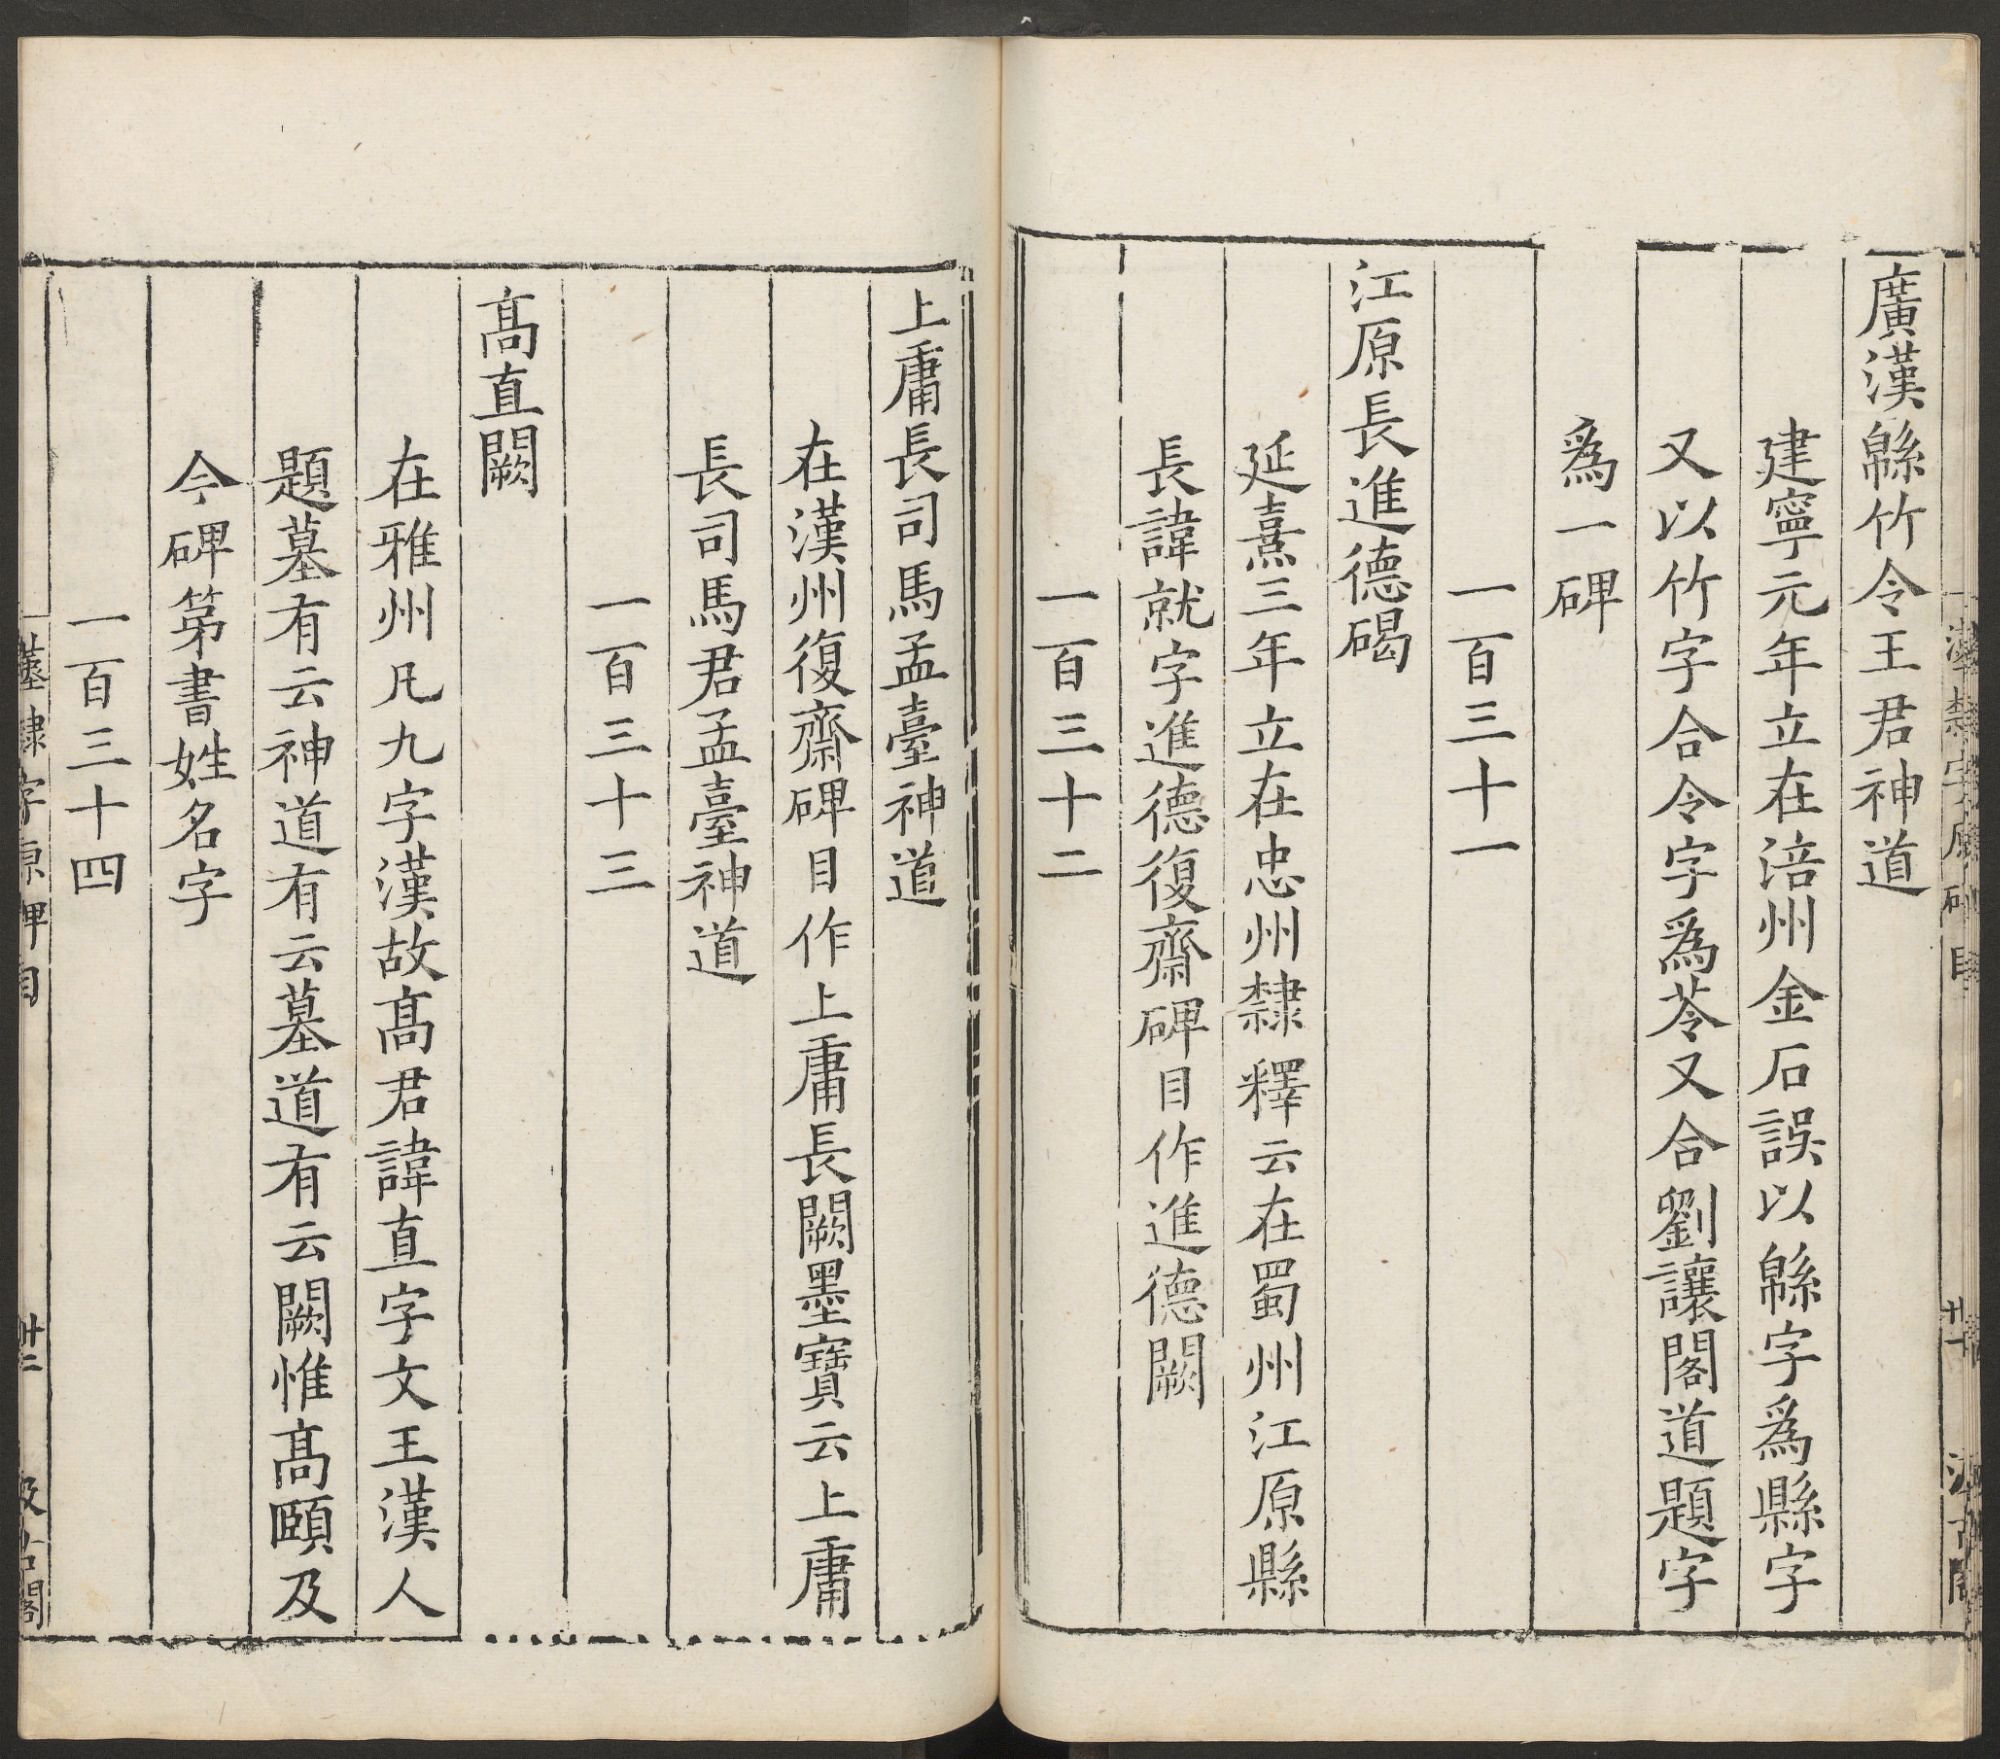 廣漢緜竹令王君神道
建寧元年立在涪州金石誤以緜字爲縣字
又以竹字合令字爲苓又合劉讓閣道題字
爲一碑
一百三十一
江原長進德碣
延熹三年立在忠州隸釋云在蜀州江原縣
長諱就字進德復齋碑目作進德闕
一百三十二
上庸長司馬孟臺神道
在漢州復齋碑目作上庸長闕墨寶云上庸
長司馬君孟臺神道
一百三十三
髙直闕
在雅州凡九字漢故髙君諱直字文王漢人
題墓有云神道有云墓道有云闕惟髙頤及
今碑第書姓名字
一百三十四
隸字原碑目
卅二
汲古閣